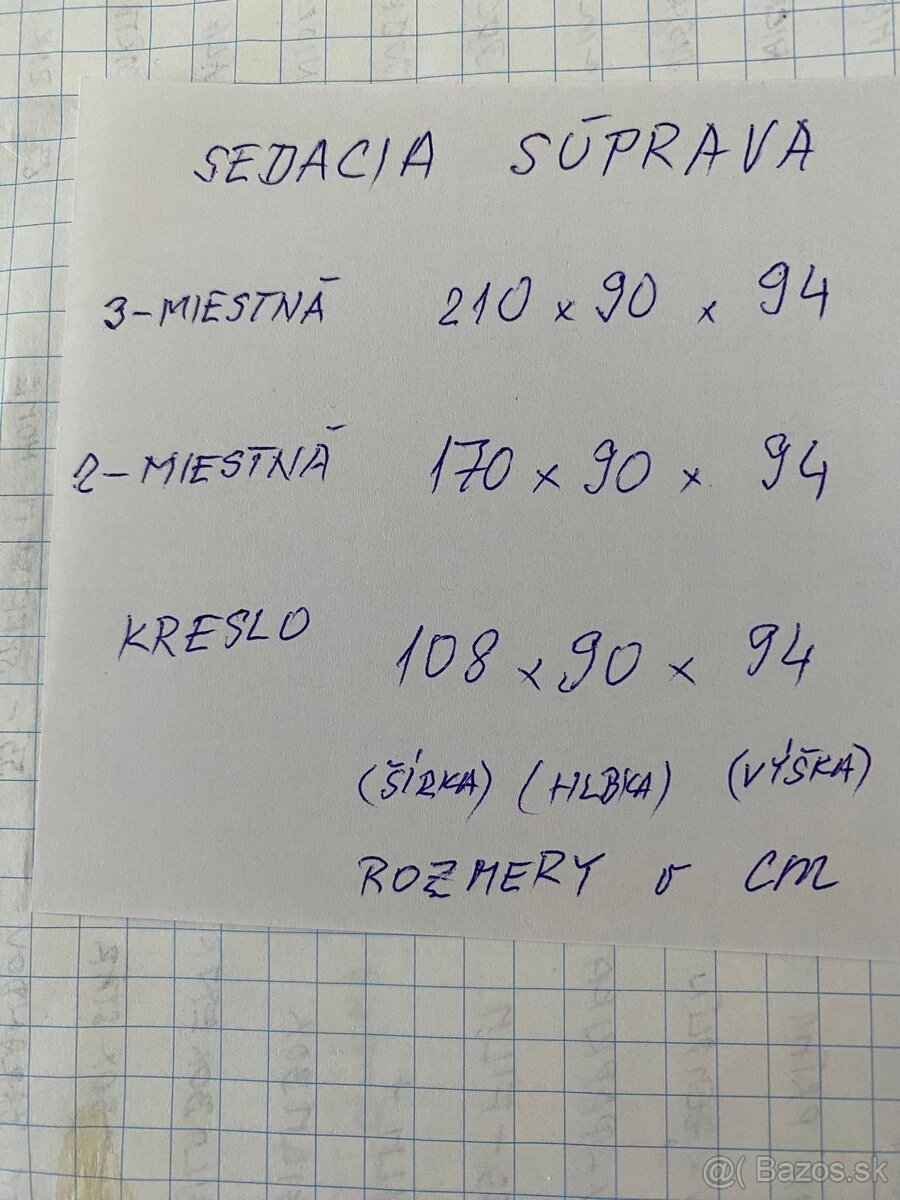 SEDACIA SÚPRAVA
3-MIESTNÁ 210 x 90 x 94
2-MIESTNÁ 170 x 90 x 94
KRESLO 108 x 90 x 94
(ŠÍRKA) (HLBKA) (VÝŠKA)
ROZMERY v cm
@( Bazos.sk